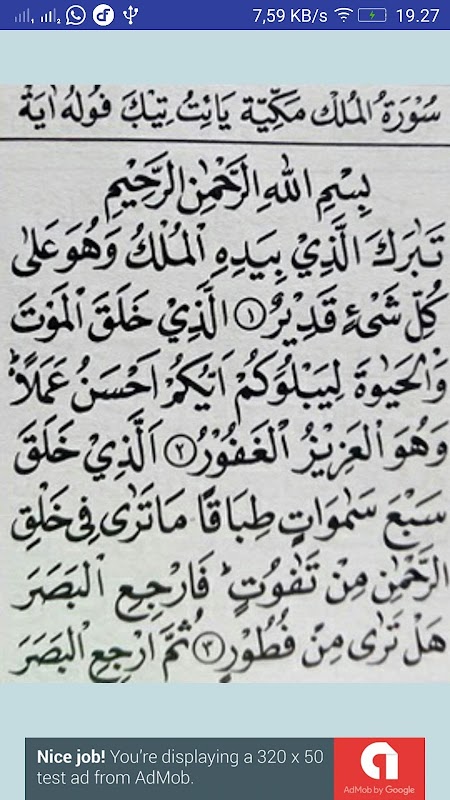 7,59 KB/s 19.27
سُوْرَةُ الْمُلْكِ مَكِّيَّةٌ يَائِتُ تِيْكَ فُولُهُ اٰيَةْ
بِسْمِ اللهِ الرَّحْمٰنِ الرَّحِيْمِ
تَبٰرَكَ الَّذِيْ بِيَدِهِ الْمُلْكُ وَهُوَ عَلٰى
كُلِّ شَىْءٍ قَدِيْرٌ ١ الَّذِيْ خَلَقَ الْمَوْتَ
وَالْحَيٰوةَ لِيَبْلُوَكُمْ اَيُّكُمْ اَحْسَنُ عَمَلًاۗ
وَهُوَ الْعَزِيْزُ الْغَفُوْرُ ٢ اَلَّذِيْ خَلَقَ
سَبْعَ سَمٰوَاتٍ طِبَاقًا مَاتَرٰى فِيْ خَلْقِ
الرَّحْمٰنِ مِنْ تَفٰوُتٍۗ فَارْجِعِ الْبَصَرَ
هَلْ تَرٰى مِنْ فُطُوْرٍ ٣ ثُمَّ ارْجِعِ الْبَصَرَ
Nice job! You're displaying a 320 x 50
test ad from AdMob.
AdMob by Google